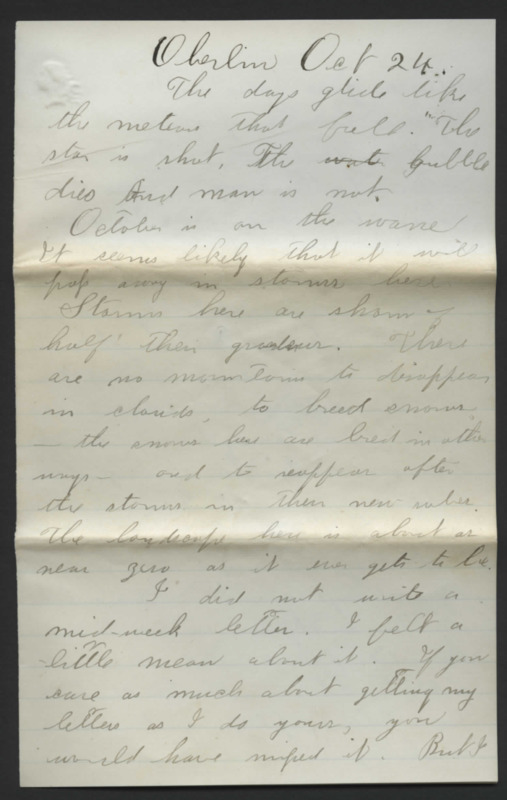 Oberlin Oct 24.
The days glide like
the meteors that fall. "The
star is shot, The wate bubble
dies And man is not.
October is on the wane
It seems likely that it will
pass away in storms here
Storms here are shorn of
half their grandeur. There
are no mountains to disappear
in clouds, to breed snows,
— the snows here are bred in other
ways — and to reappear after
the storms in their new robes.
The landscape here is about as
near zero as it ever gets to be.
I did not write a
mid-week letter. I felt a
little mean about it. If you
care as much about getting my
letters as I do yours, you
would have missed it. But I